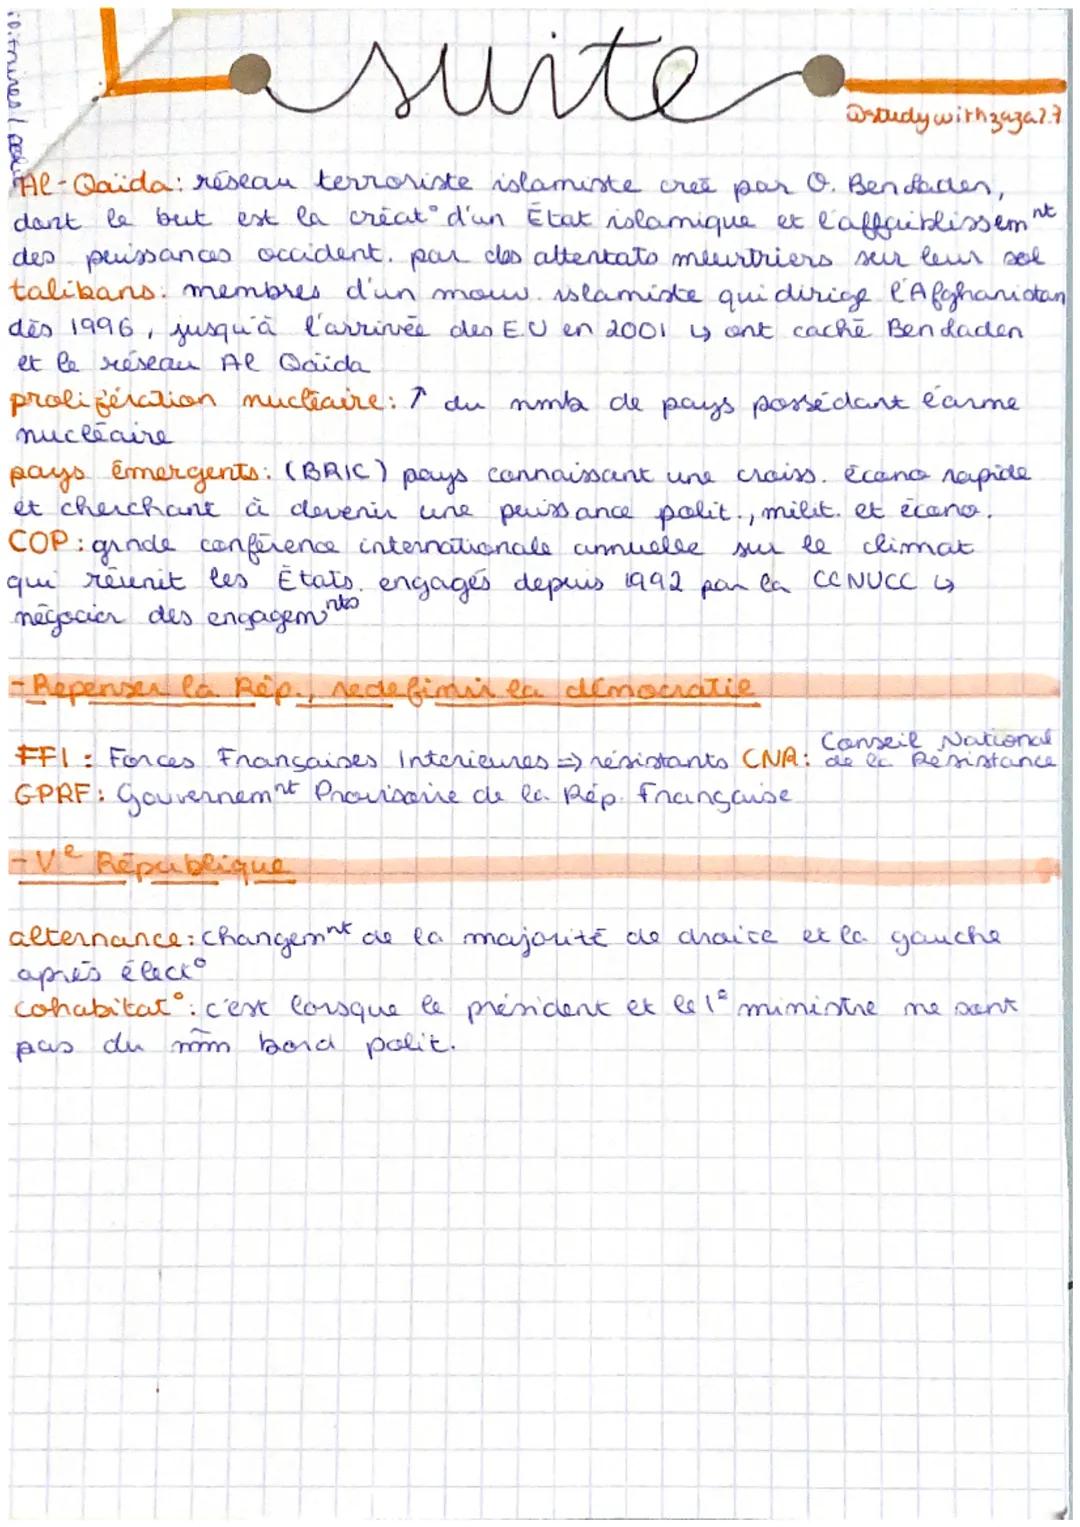 suite
@studywithzaza2.7
Al-Qaïda: réseau terroriste islamiste créé par O. Ben Laden,
dont le but est la créat° d'un État islamique et l'affaiblissem nt
des puissances occident. par des attentats meurtriers sur leur sol
talibans: membres d'un mouv. islamiste qui dirige l'Afghanistan
dès 1996, jusqu'à l'arrivée des E.U en 2001 ↳ ont caché Ben Laden
et le réseau Al Qaïda
prolifération nucléaire: ↑ du nmb de pays possédant l'arme
nucléaire
pays émergents: (BRIC) pays connaissant une croiss. écono rapide
et cherchant à devenir une puissance polit., milit. et écono.
COP: grnde conférence internationale annuelle sur le climat
qui réunit les États engagés depuis 1992 par la CCNUCC ↳
négocier des engagem nts
- Repenser la Rép., redefinir la démocratie
FFI: Forces Françaises Interieures => résistants CNR: Conseil National de la Résistance
GPRF: Gouvernem nt Provisoire de la Rép. Française
- Ve République
alternance: changem nt de la majorité de droite et la gauche
après élect°
cohabitat°: c'est lorsque le président et le 1e ministre ne sont
pas du mm bord polit.